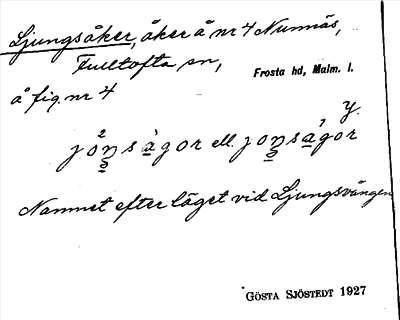 Ljungsåker, åker å nr 4 Nunnäs,
Fulltofta sn,
Frosta hd, Malm. l.
å fig. nr 4
y.
jonsagor ell. jonsagor
Namnet efter läget vid Ljungsvången
GÖSTA SJÖSTEDT 1927